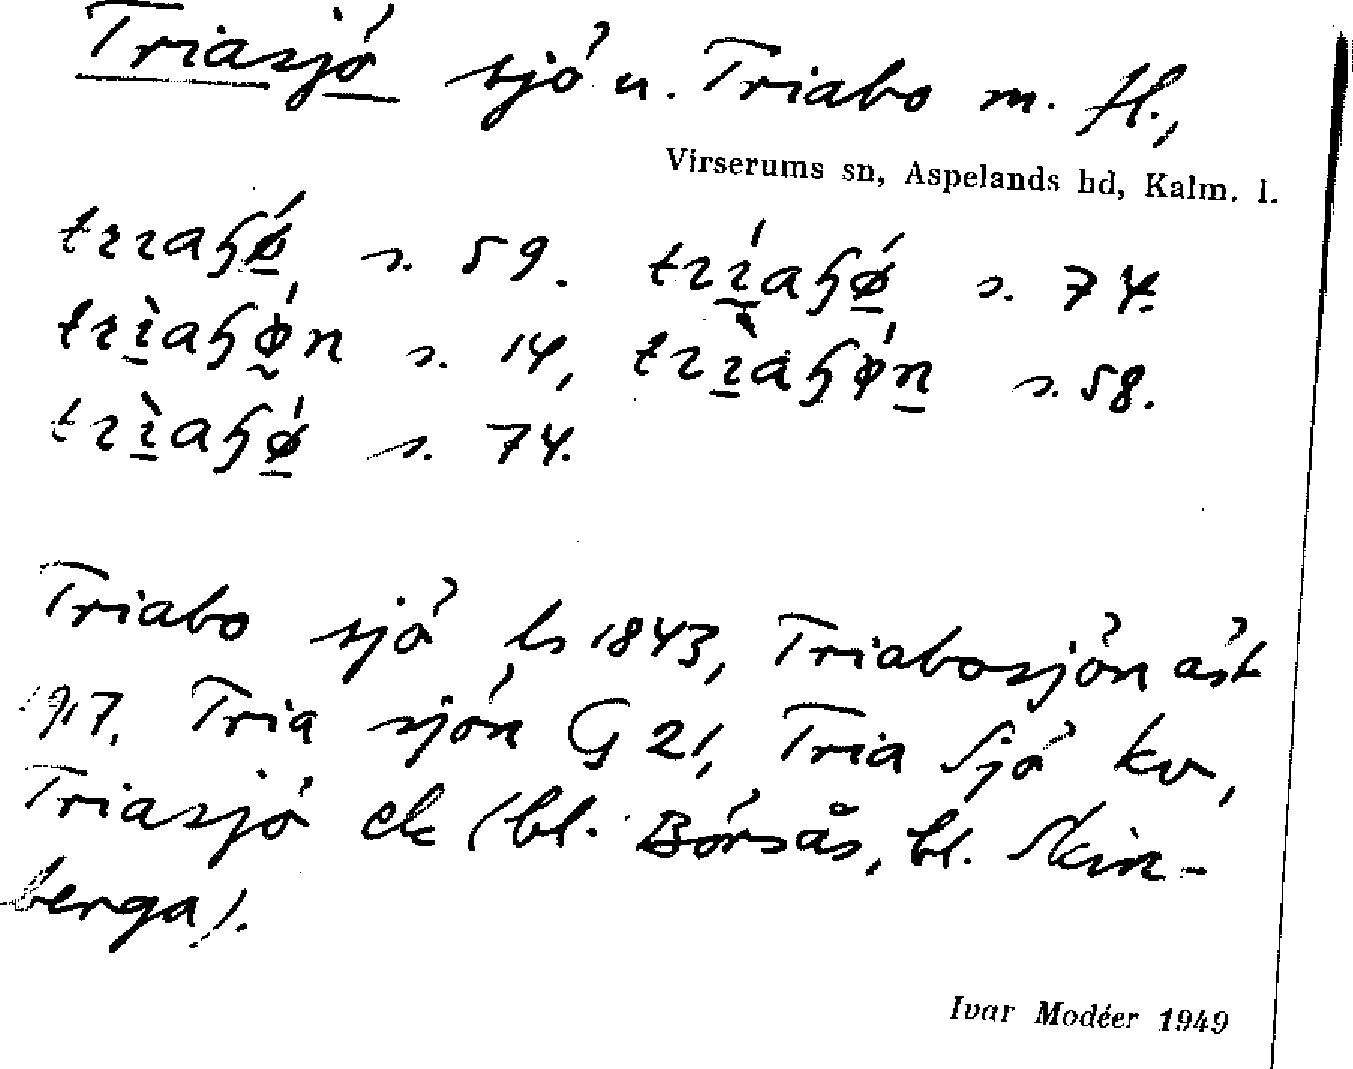 Triasjö sjö u. Triabo m. fl.,
Virserums sn, Aspelands hd, Kalm. l.
s. 59. s. 74.
s. 14, s. 58.
s. 74.
Triabo sjö ls 1843, Triabosjön åst
1917. Tria sjön G 21, Tria Sjö kv,
Triasjö ek (bl. Börsås, bl. Skin-
berga).
Ivar Modéer 1949